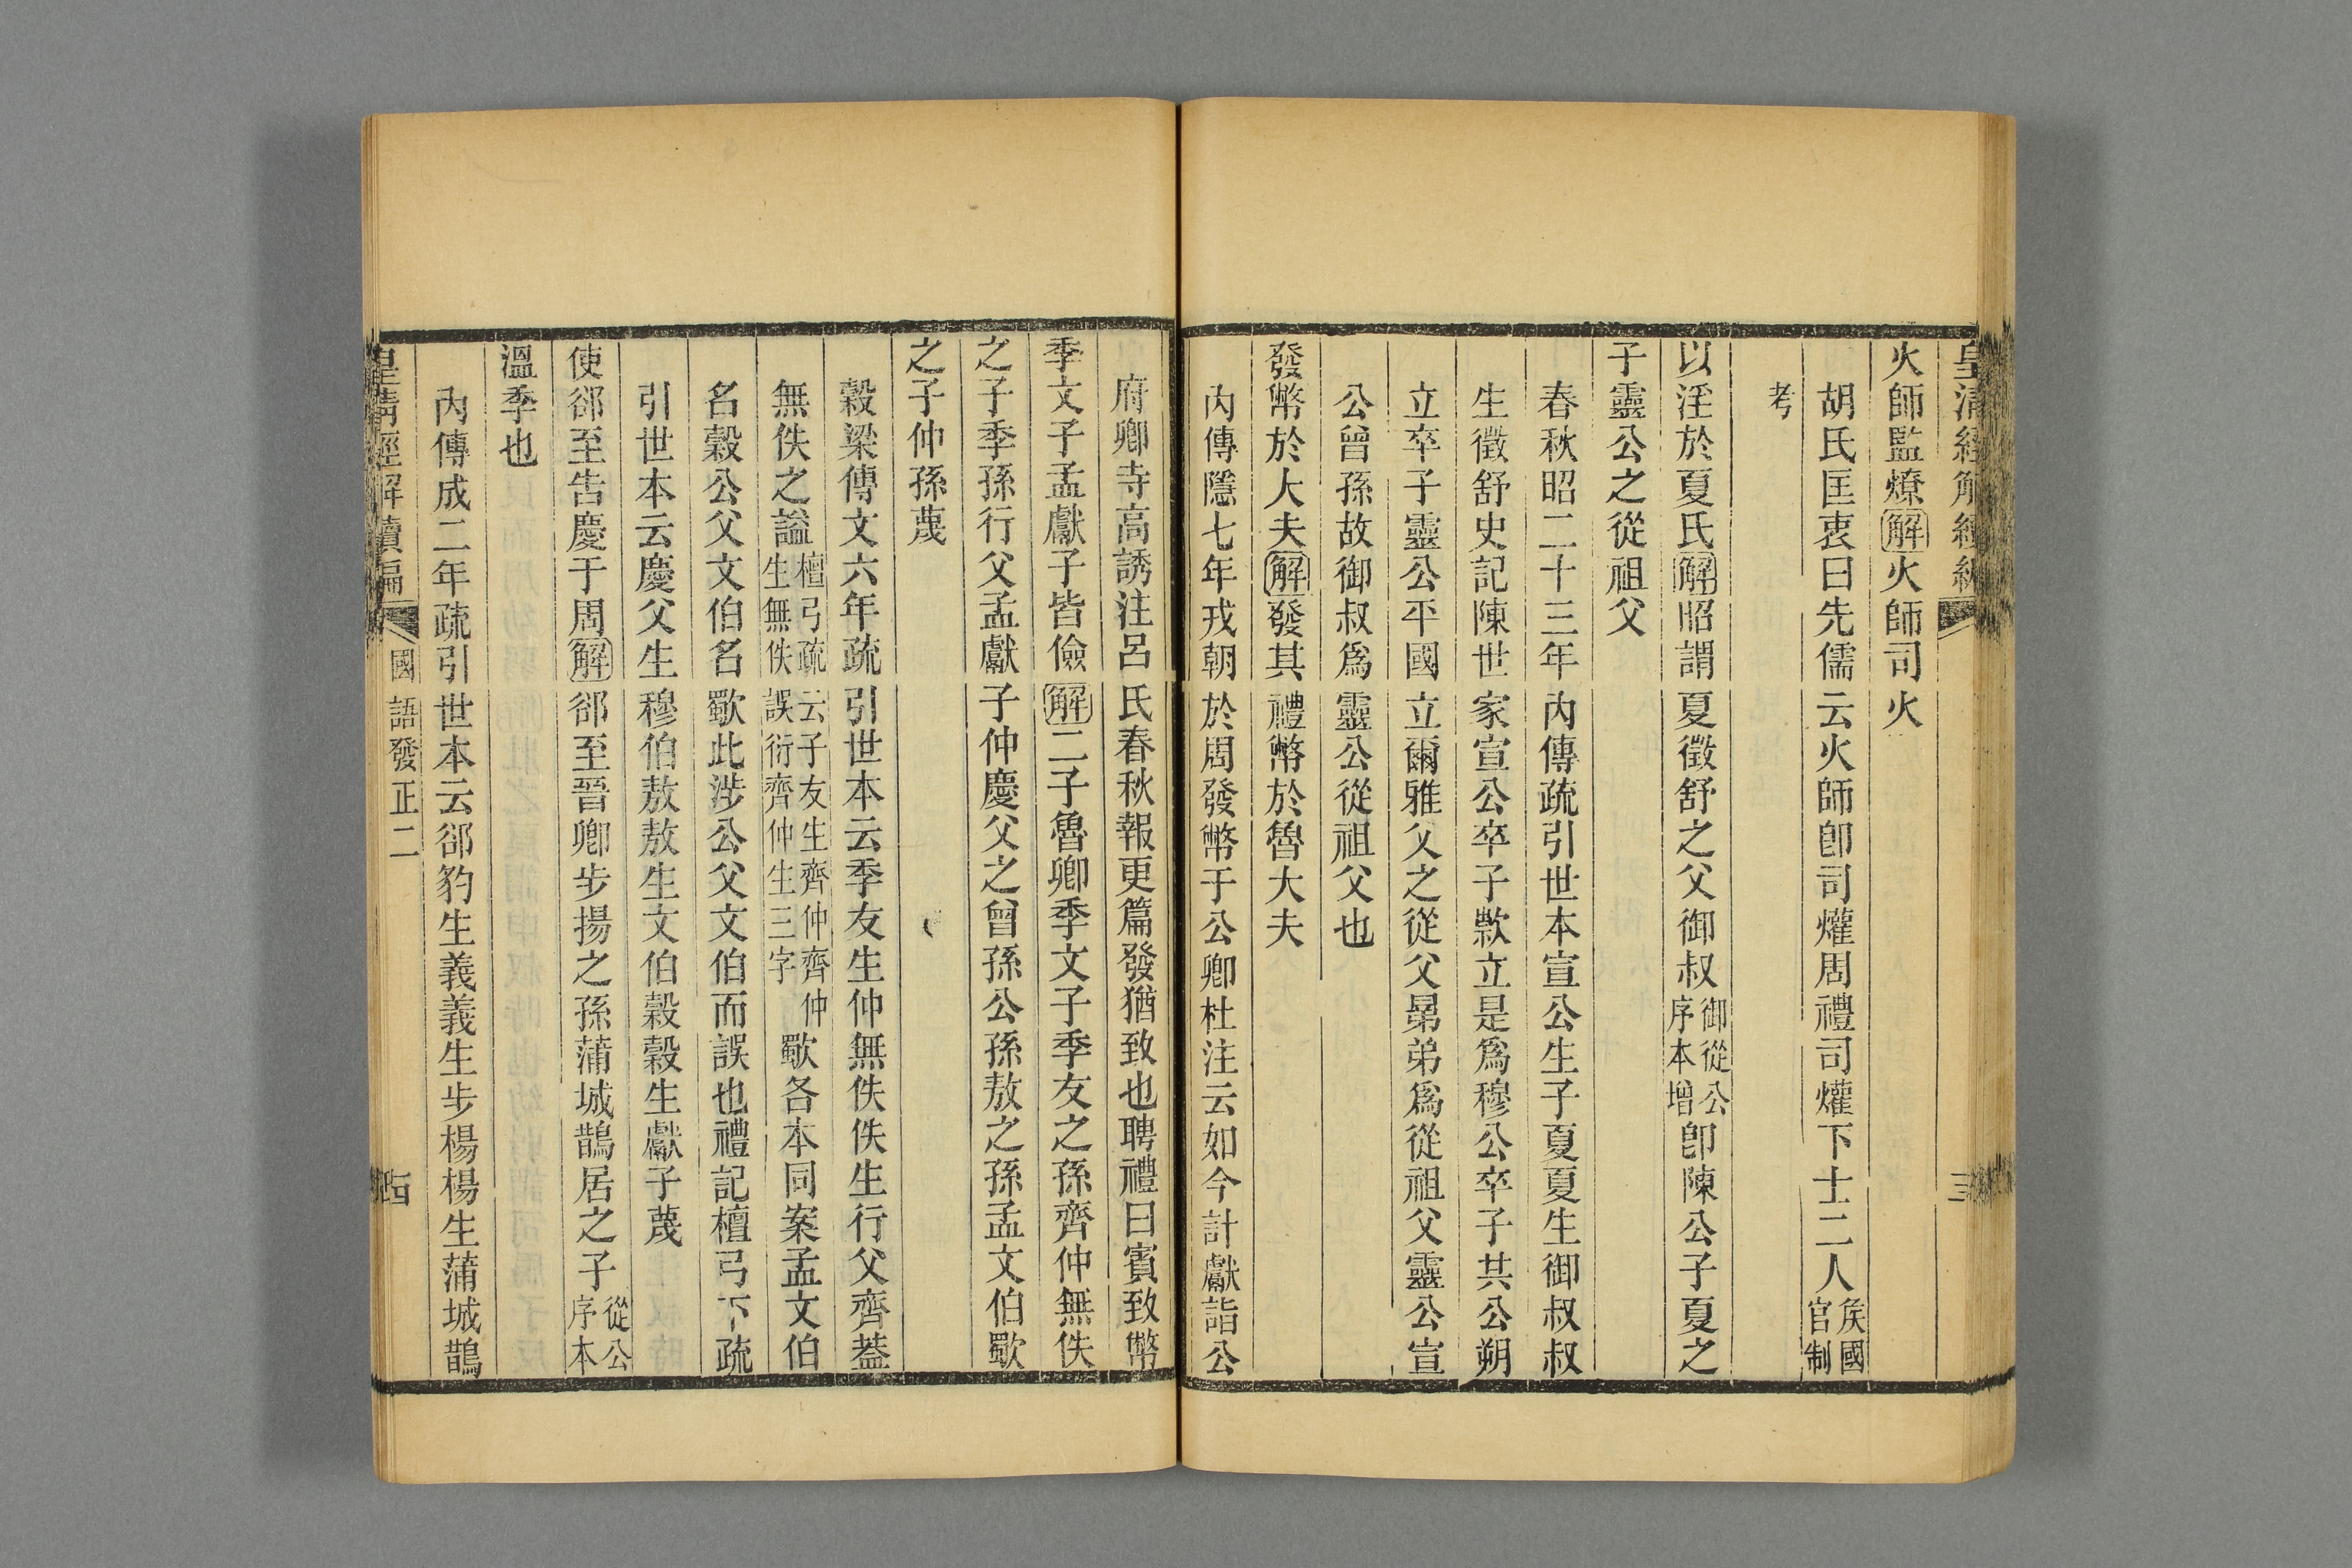 火師監燎解火師司火
胡氏匡衷曰先儒云火師卽司爟周禮司爟下士二人矦國官制
考
以淫於夏氏解昭謂夏徵舒之父御叔御從公序本增卽陳公子夏之
子靈公之從祖父
春秋昭二十三年內傳疏引世本宣公生子夏夏生御叔叔
生徵舒史記陳世家宣公卒子款立是爲穆公卒子共公朔
立卒子靈公平國立爾雅父之從父晜弟爲從祖父靈公宣
公曾孫故御叔爲靈公從祖父也
發幣於大夫解發其禮幣於魯大夫
內傳隱七年戎朝於周發幣于公卿杜注云如今計獻詣公
府卿寺高誘注呂氏春秋報更篇發猶致也聘禮曰賓致幣
季文子孟獻子皆儉解二子魯卿季文子季友之孫齊仲無佚
之子季孫行父孟獻子仲慶父之曾孫公孫敖之孫孟文伯歜
之子仲孫蔑
穀梁傳文六年疏引世本云季友生仲無佚佚生行父齊葢
無佚之謚檀弓疏云子友生齊仲齊仲生無佚誤衍齊仲生三字歜各本同案孟文伯
名穀公父文伯名歜此涉公父文伯而誤也禮記檀弓下疏
引世本云慶父生穆伯敖敖生文伯穀穀生獻子蔑
使郤至告慶于周解郤至晉卿步揚之孫蒲城鵲居之子從公序本
溫季也
內傳成二年疏引世本云郤豹生義義生步楊楊生蒲城鵲
皇清經解續編
國語發正二